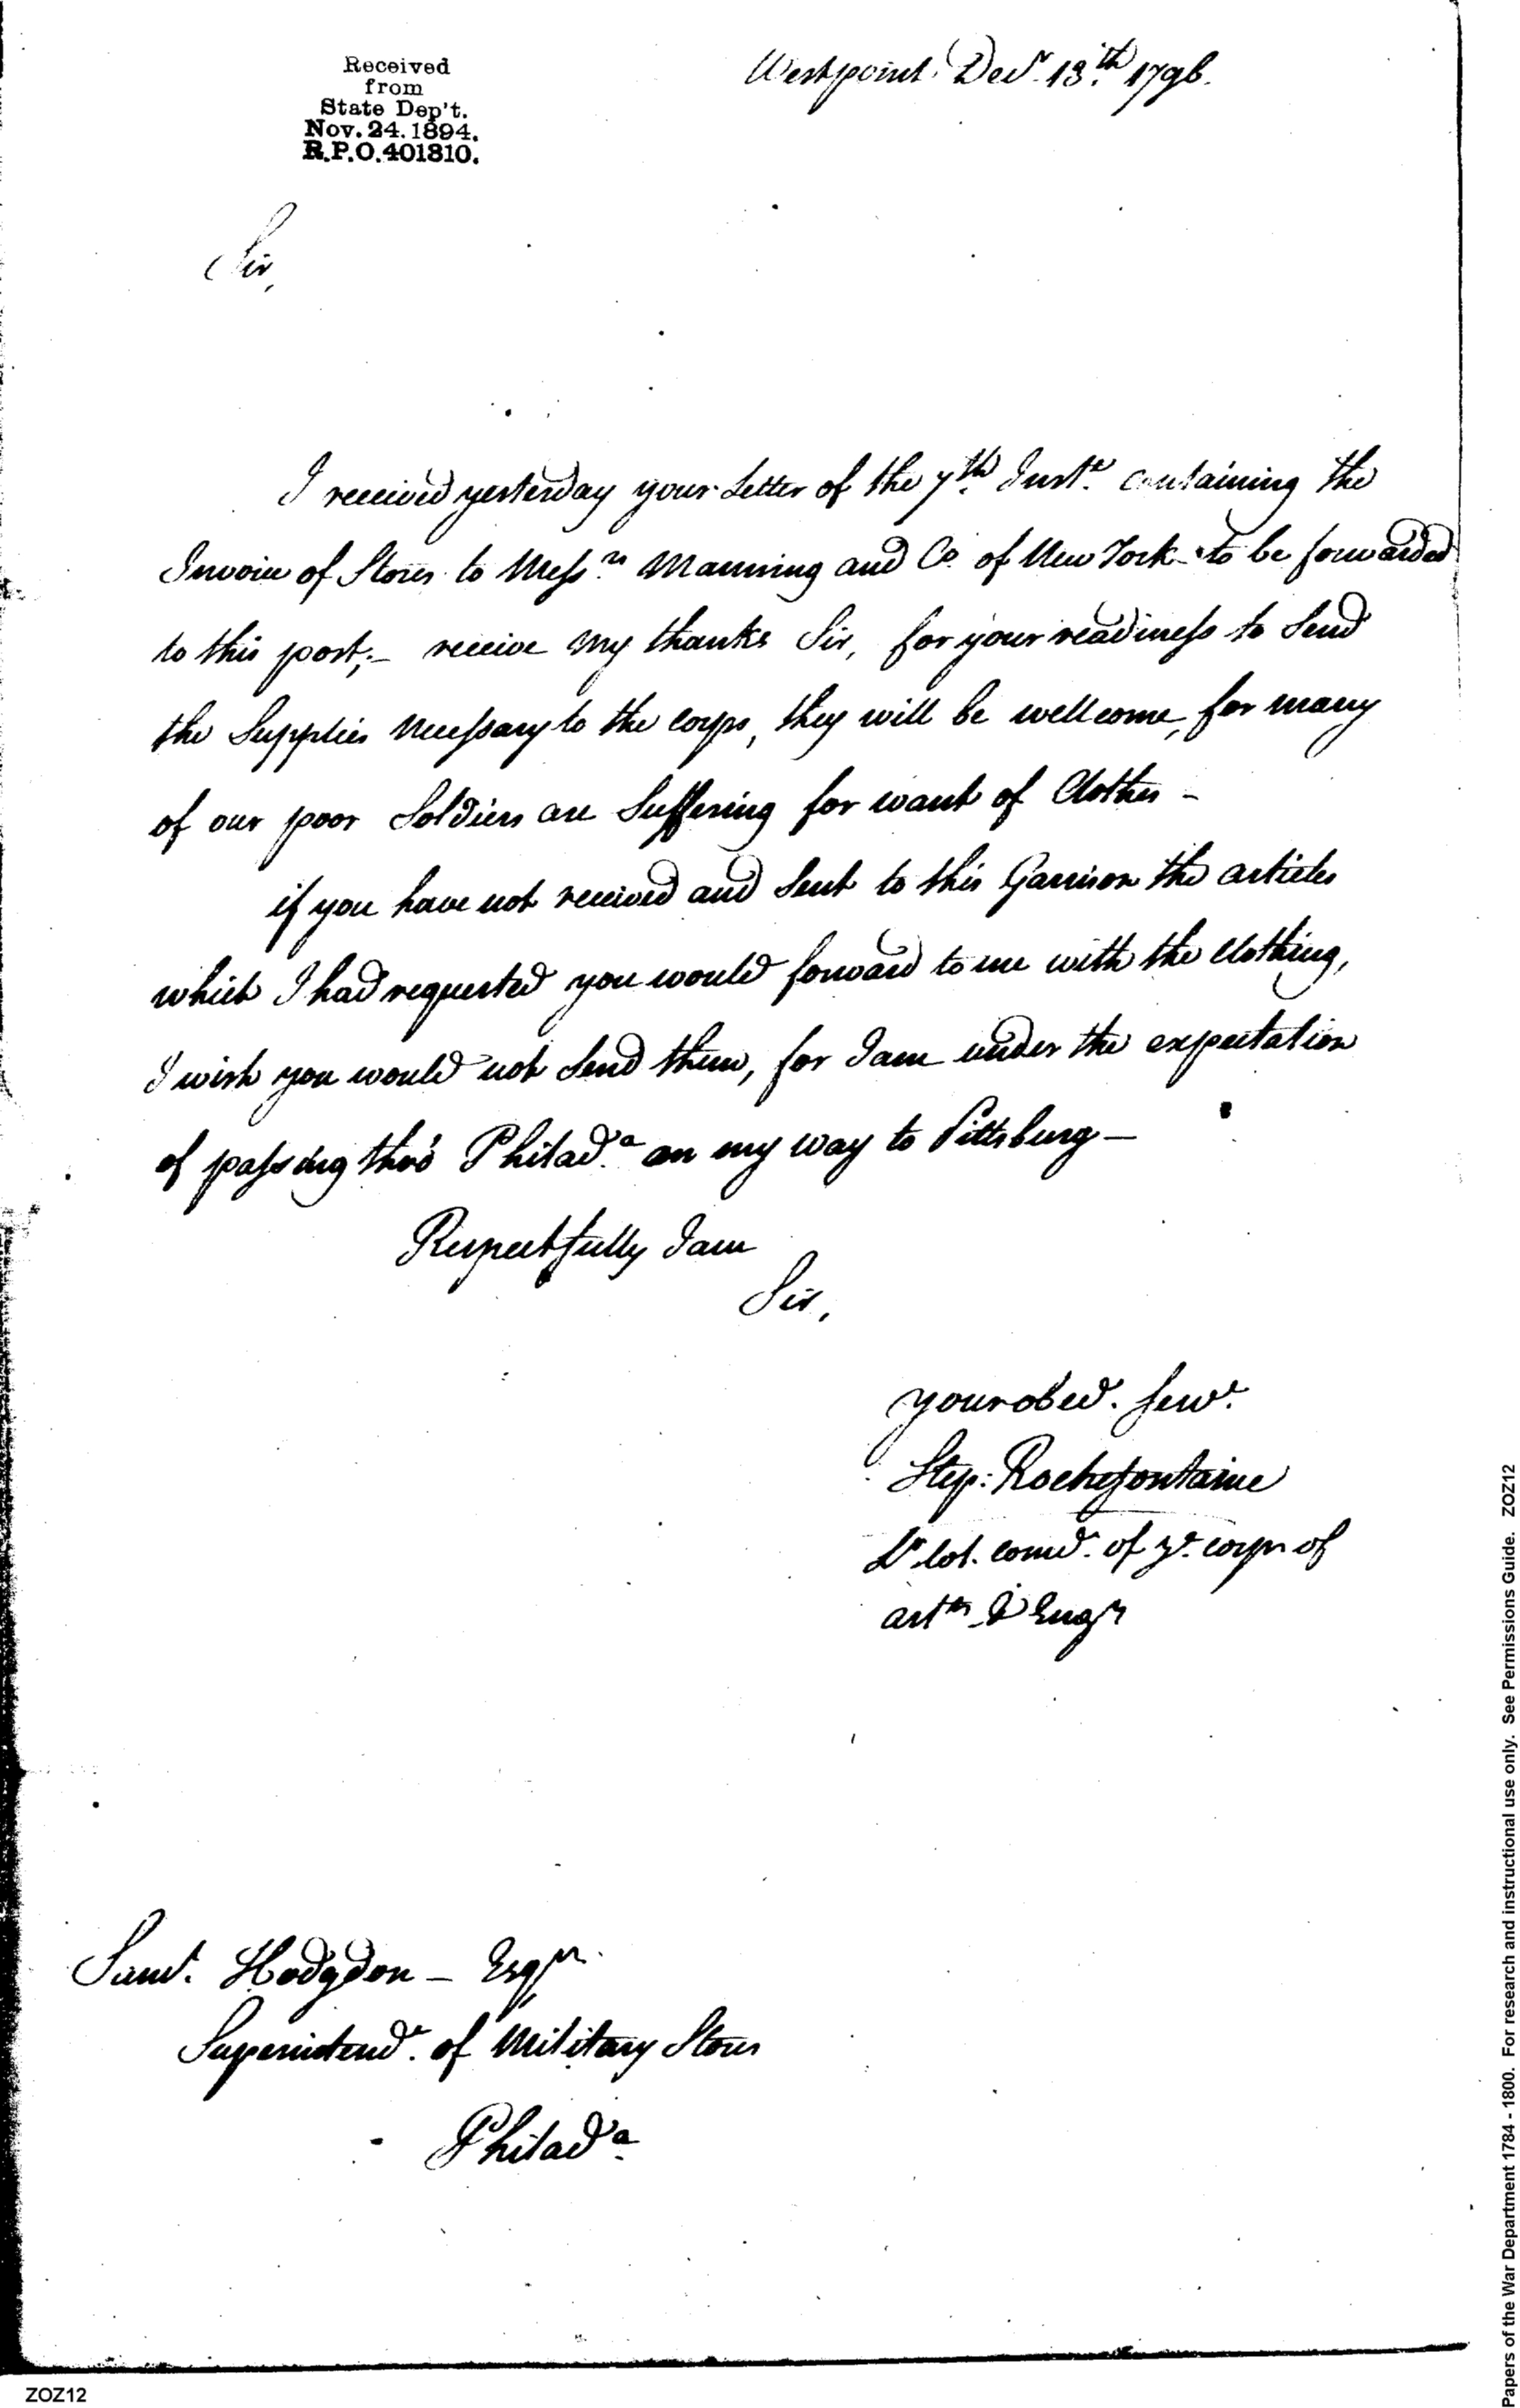 Received
from
State Dep't.
Nov. 24. 1894.
R.P.O. 401810.
Westpoint. Decr. 13.th 1796.
Sir,
I received yesterday your Letter of the 7th. Inst.t containing the
Invoice of Stores to Messrs. Manning and Co. of New York to be forwarded
to this post;- receive my thanks Sir, for your readiness to Send
the Supplies Necessary to the corps, they will be wellcome, for many
of our poor Soldiers are Suffering for want of Clothes -
if you have not received and Sent to this Garrison the articles
which I had requested you would forward to me with the Clothing,
I wish you would not Send them, for I am under the expectation
of passing thro' Philad.a on my way to Pittsburg -
Respectfully I am
Sir,
your obed. Servt.
Step: Rochefontaine
Lt Col. comd. of ye. corps of
artrs & Engrs
Saml. Hodgdon - Esqr.
Superintendt. of Military Stores
Philad.a
ZOZ12
Papers of the War Department 1784 - 1800. For research and instructional use only. See Permissions Guide. ZOZ12